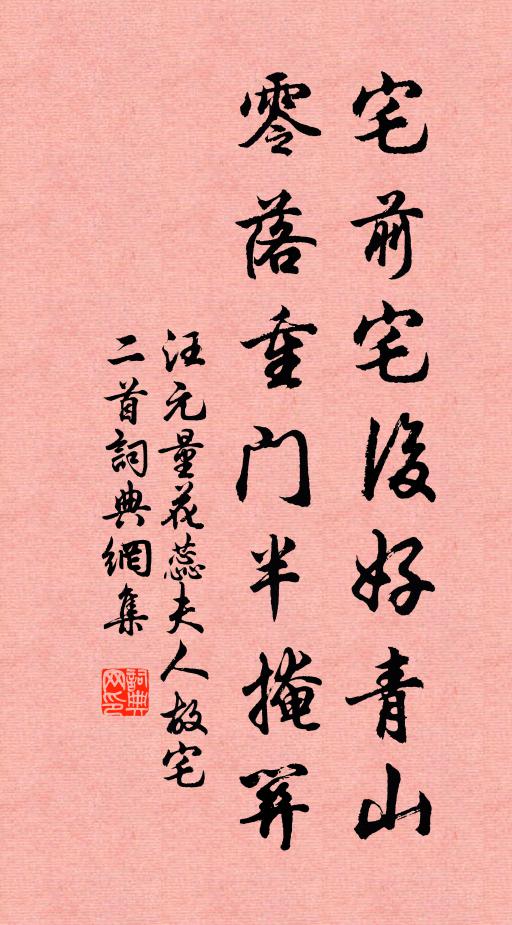 宅前宅後好青山
零落重門半掩關
汪元量花蕊夫人故宅
二首詞典網集
詞典網印